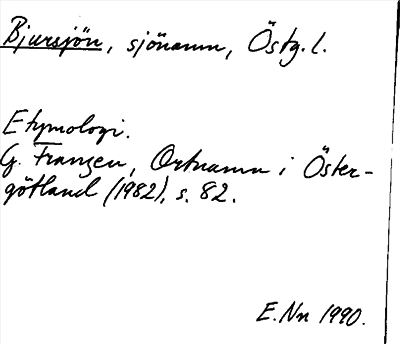 Bjursjön, sjönamn, Östg. l.
Etymologi.
G. Franzén, Ortnamn i Öster-
götland (1982), s. 82.
E. Nn 1990.